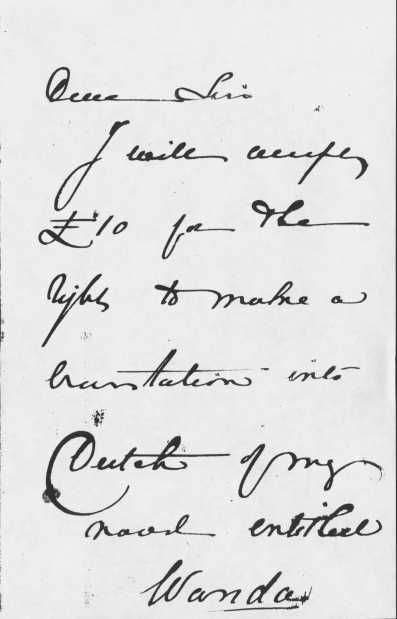 Dear Sir
I will accept
£10 for the
right to make a
translation into
Dutch of my
novel entitled
Wanda